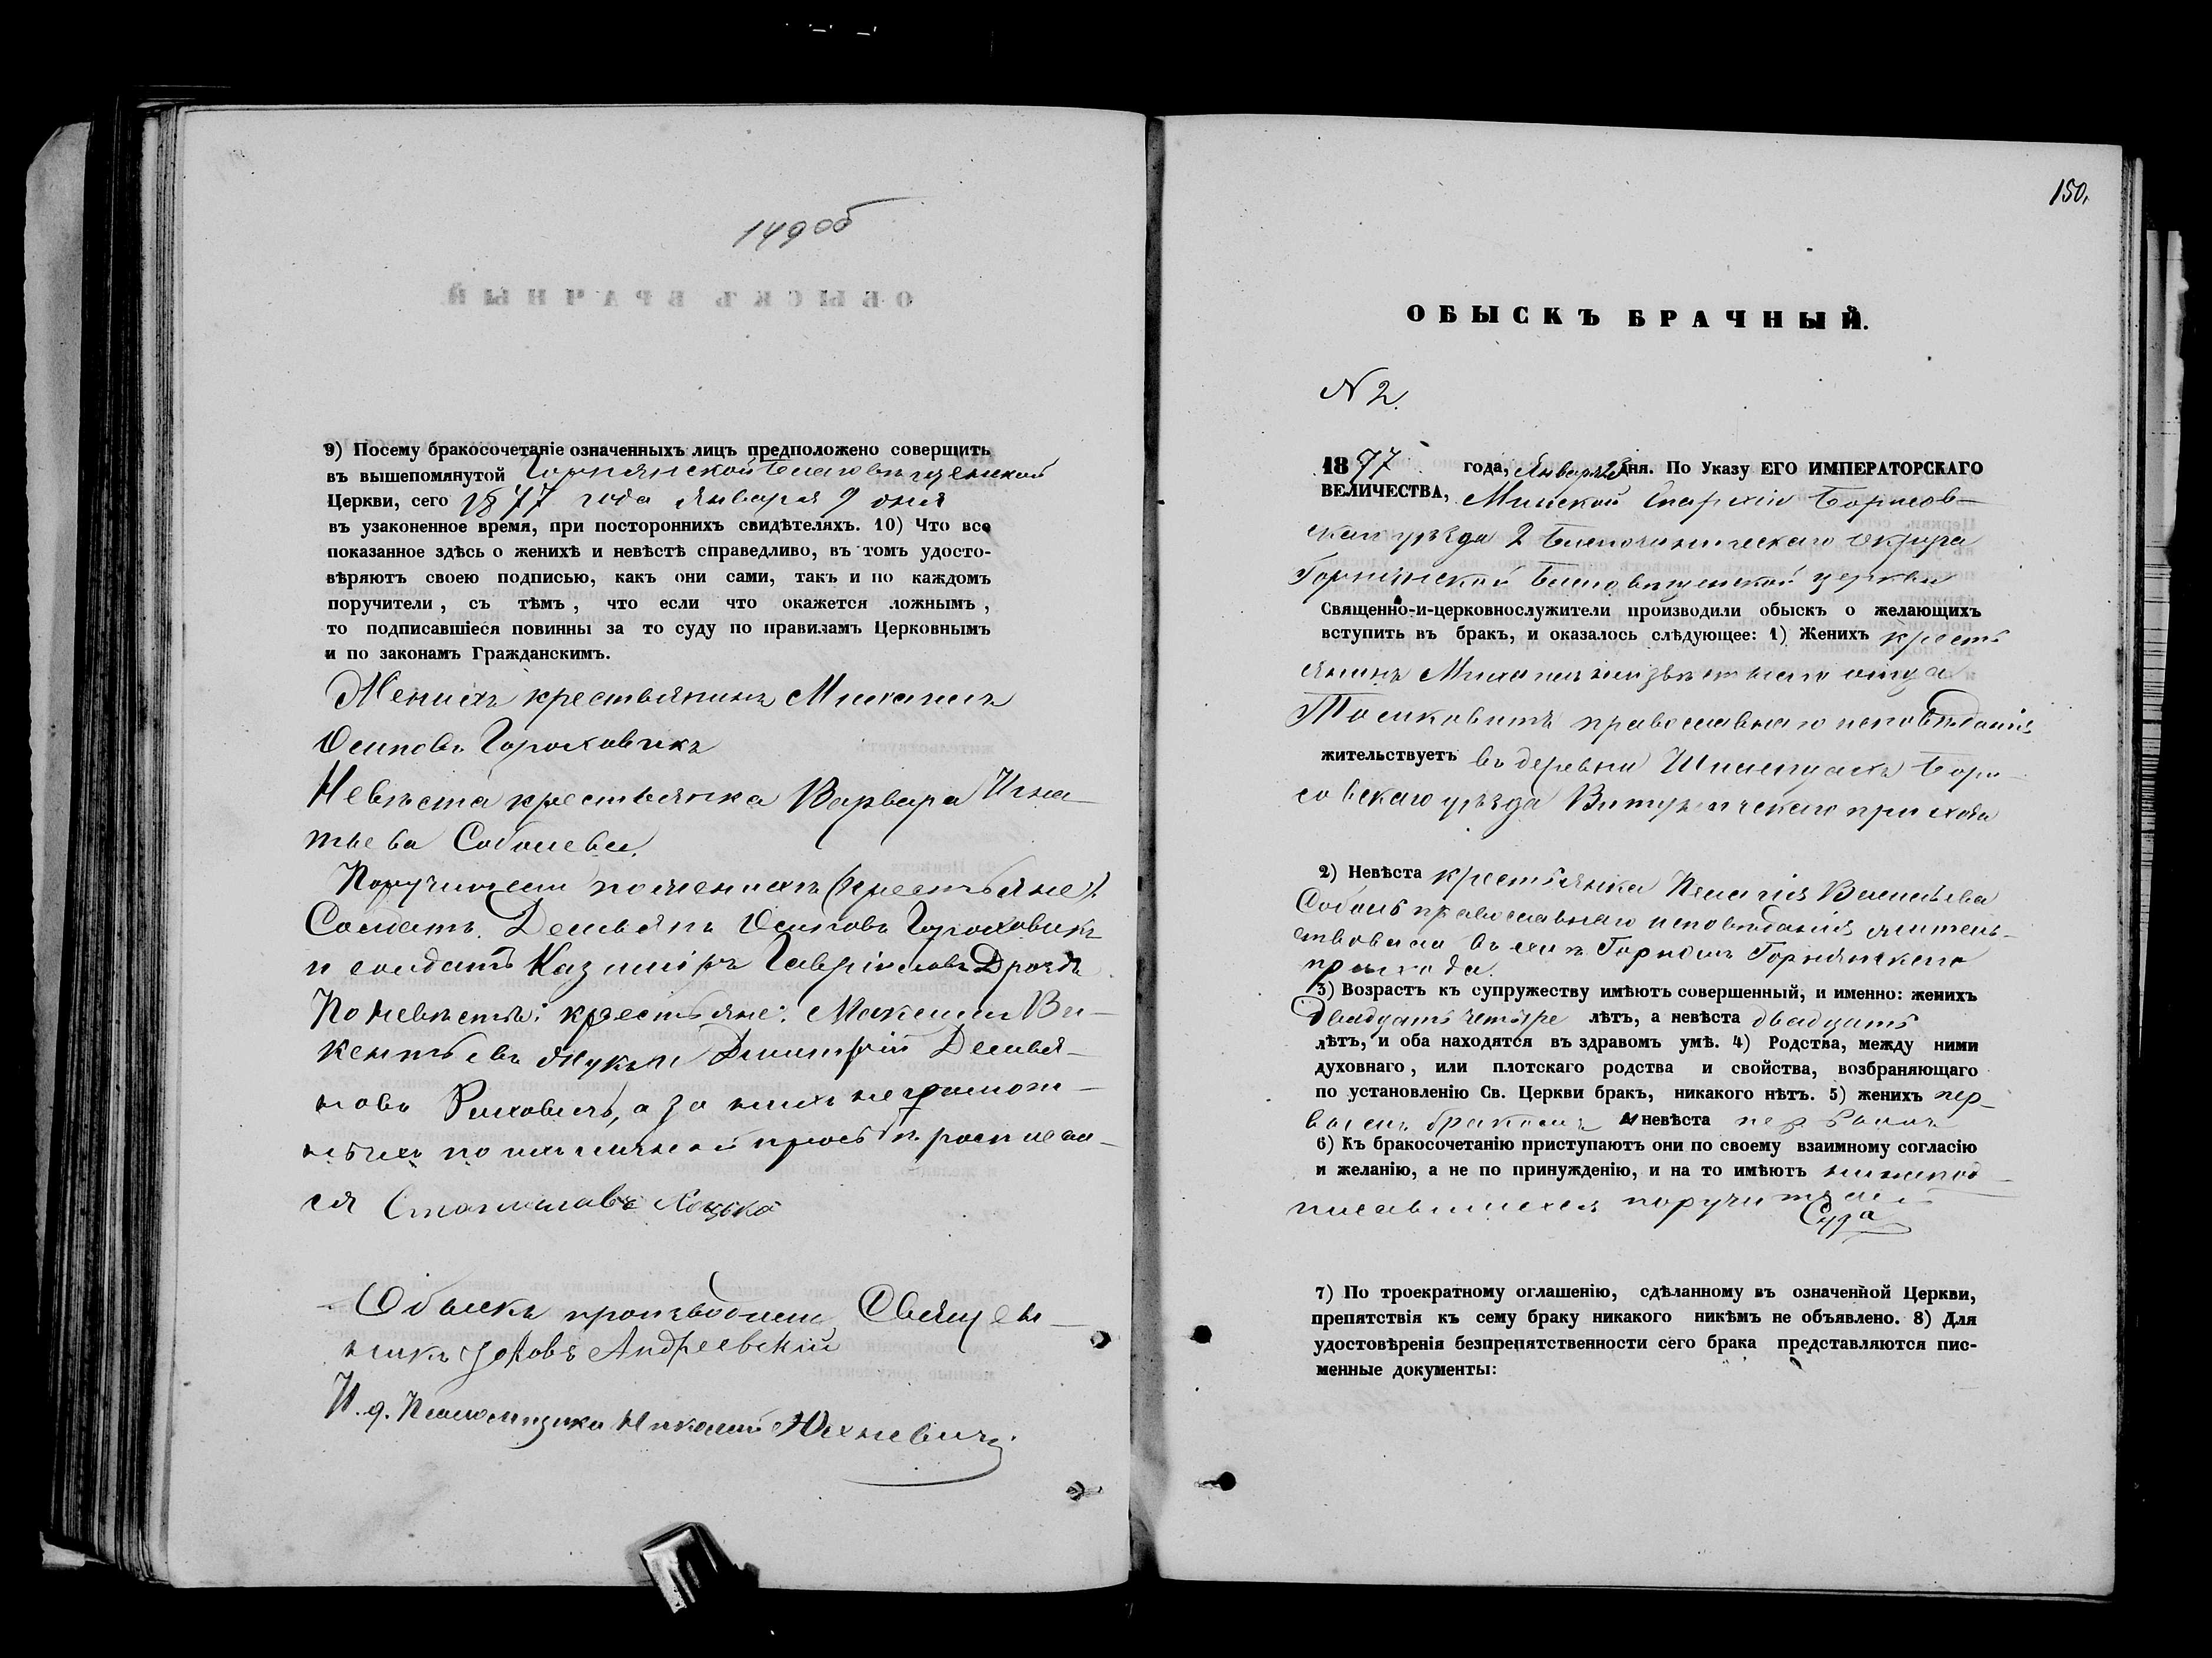 149 об
9) Посему бракосочетаніе означенныхъ лицъ предположено совершить
въ вышепомянутой Горнянской Благовѣщенской
Церкви, сего 1877 года Января 9 дня
въ узаконенное время, при постороннихъ свидѣтеляхъ. 10) Что все
показанное здѣсь о женихѣ и невѣстѣ справедливо, въ томъ удосто-
вѣряютъ своею подписью, какъ они сами, такъ и по каждомъ
поручители, съ тѣмъ, что если что окажется ложнымъ,
то подписавшіеся повинны за то суду по правиламъ Церковнымъ
и по законамъ Гражданскимъ.
Женихъ крестьянинъ Михаилъ
Осиповъ Гороховикъ
Невѣста крестьянка Варвара Игна-
тьева Соболева.
Поручители по женихѣ (крестьяне):
Солдатъ Демьянъ Осиповъ Гороховикъ
и солдатъ Казиміръ Гавріиловъ Дроздъ
По невѣстѣ: крестьяне: Максимъ Ви-
кентьевъ Жукъ и Димитрій Демья-
новъ Рихович, а за нихъ неграмот-
ныхъ по ихъ личной просьбѣ росписал-
ся Станиславъ
Обыскъ производили Священ-
никъ Іаковъ Андреевскій
И. д. Псаломщика Николай Юхневичъ
150.
ОБЫСКЪ БРАЧНЫЙ.
N 2.
1877 года, Января 23 дня. По Указу ЕГО ИМПЕРАТОРСКАГО
ВЕЛИЧЕСТВА, Минской Епархіи Борисов-
скаго уѣзда 2 Благочинническаго округа
Горнянской Благовѣщенской церкви
Священно-и-церковнослужители производили обыскъ о желающихъ
вступить въ бракъ, и оказалось слѣдующее: 1) Женихъ кресть
янинъ Михаилъ неизвѣстнаго отца
православнаго исповѣданія
жительствуетъ въ деревни Бори-
совскаго уѣзда прихода
2) Невѣста крестьянка Пелагія Васильева
Соболь православнаго исповѣданія жительствовала
въ селѣ Горнахъ Горнянскаго
прихода.
3) Возрастъ къ супружеству имѣютъ совершенный, и именно: женихъ
двадцать четыре лѣтъ, а невѣста двадцать
лѣтъ, и оба находятся въ здравомъ умѣ. 4) Родства, между ними
духовнаго, или плотскаго родства и свойства, возбраняющаго
по установленію Св. Церкви бракъ, никакого нѣтъ. 5) женихъ пер-
вымъ бракомъ и невѣста первымъ
6) Къ бракосочетанію приступаютъ они по своему взаимному согласію
и желанію, а не по принужденію, и на то имѣютъ нижепод-
писавшихся поручителей
7) По троекратному оглашенію, сдѣланному въ означенной Церкви,
препятствія къ сему браку никакого никѣмъ не объявлено. 8) Для
удостовѣренія безпрепятственности сего брака представляются пис-
менные документы: